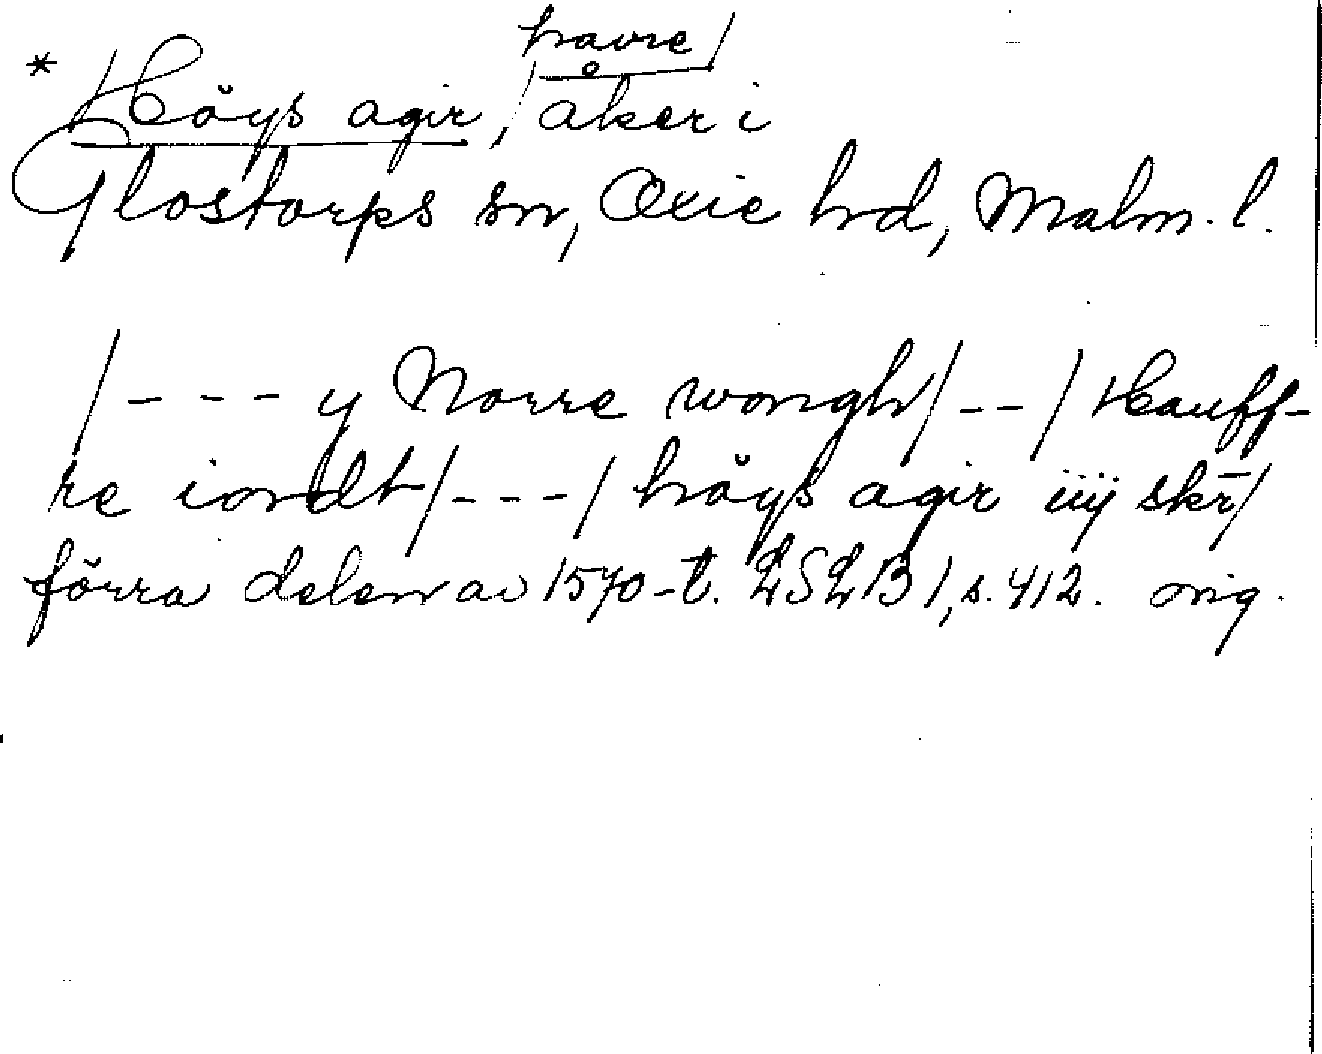 havre/
* Höys agir, /åker i
Glostorps sn, Oxie hd, Malm. l.
/- - - y Norre wongh/- -/ Hauff-
re iordt/- - -/ höys agir iiij skr̄/
förra delen av 1570-t. LSLB 1, s. 412. orig.